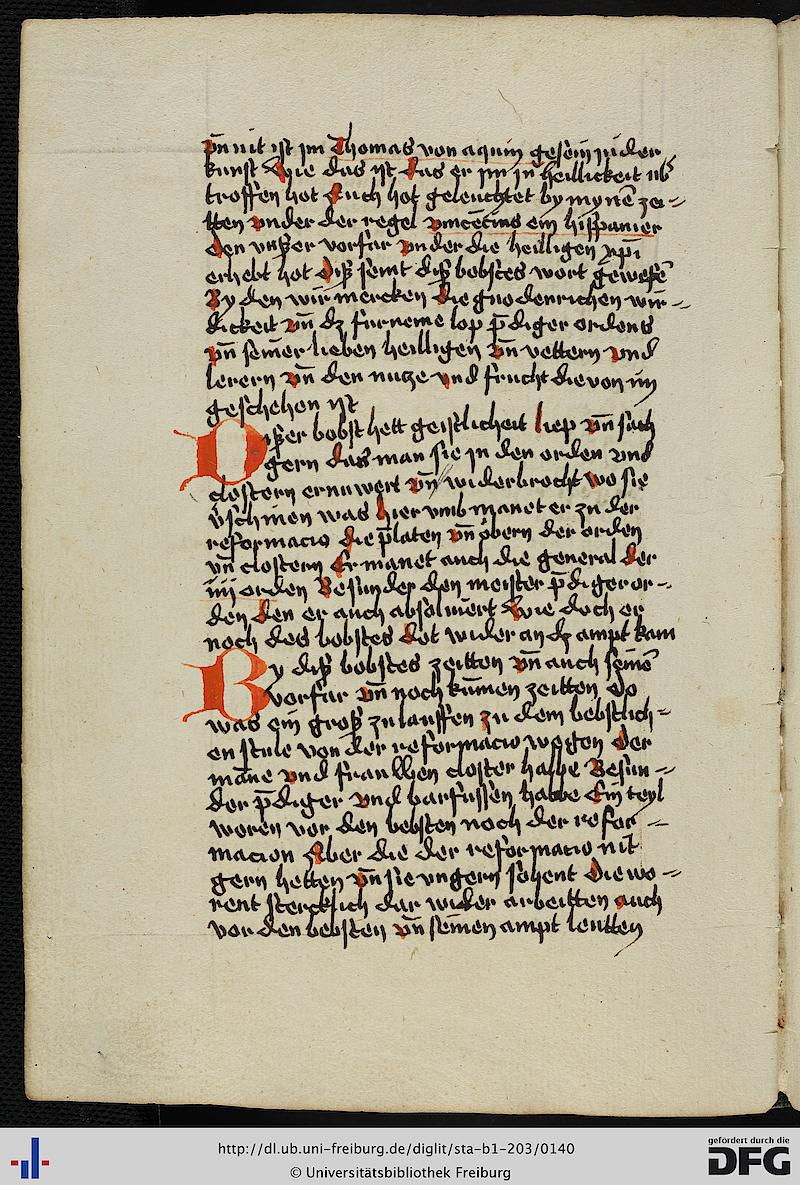 vn̄ nit ist jm Thomas von aquin gesein jn der
kunst Wie das ist das er jm jn heillickeit ub̾
troffen hot Auch hot geleuchtet by mynē zei-
tten vnder der regel vincēcius ein hispanier
den vnßer vorfar vnder die heilligen xp̄i
erhebt hot Diß seint diß bobstes wort gewesē
By den wir mercken die gnodenrichen wir-
dickeit vn̄ dz furneme lop p̄diger ordens
vn̄ seiner lieben heilligen vn̄ vettern vnd
lerern vn̄ den nutze vnd frucht die von jm
geschehen ist
Dißer bobst hett geistlicheit liep vn̄ sach
gern das man sie jn den orden vnd
clostern ernuwert vn̄ widerbrocht wo sie
v̄schinen was hier vmb manet er zu der
reformacio die p̄laten vn̄ obern der orden
vn̄ clostern Er manet auch die general der
iiij orden Besunder den meister p̄diger or-
den den er auch absolviert Wie doch er
noch des bobstes dot wider an dz ampt kam
By diß bobstes zeitten vn̄ auch seinē
vorfar vn̄ noch kūmen zeitten Do
was ein groß zulauffen zu dem bebstlich-
en stule von der reformacio wegen der
māne vnd frauwen closter halbe Besun-
der p̄diger vnd barfussen halbe Ein teyl
woren vor den bebsten noch der refor-
macion Aber die der reformacio nit
gern hetten vn̄ sie vngern sohent Die wo-
rent stercklich dar wider arbeitten auch
vor den bebsten vn̄ seinen ampt leutten
http://dl.ub.uni-freiburg.de/diglit/sta-b1-203/0140
© Universitätsbibliothek Freiburg
gefördert durch die
DFG